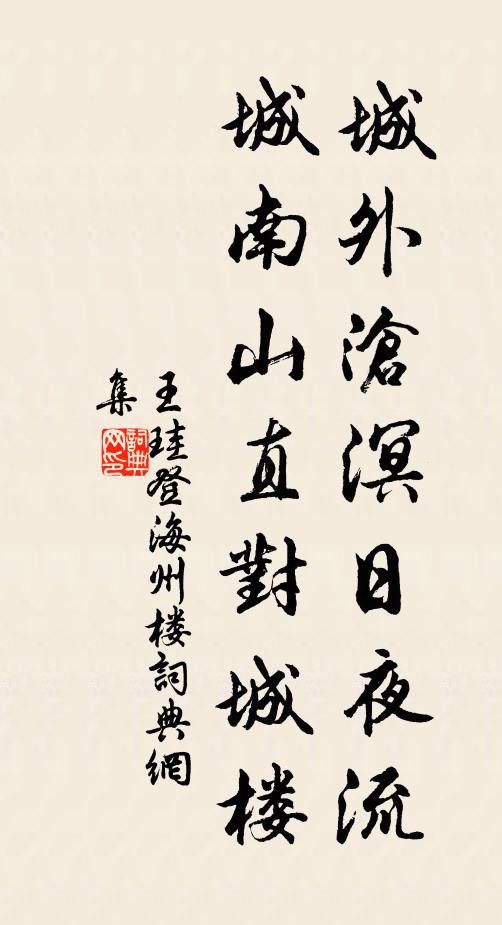 城外滄溟日夜流
城南山直對城楼
王珪登海州楼詞典網
集
詞典网印